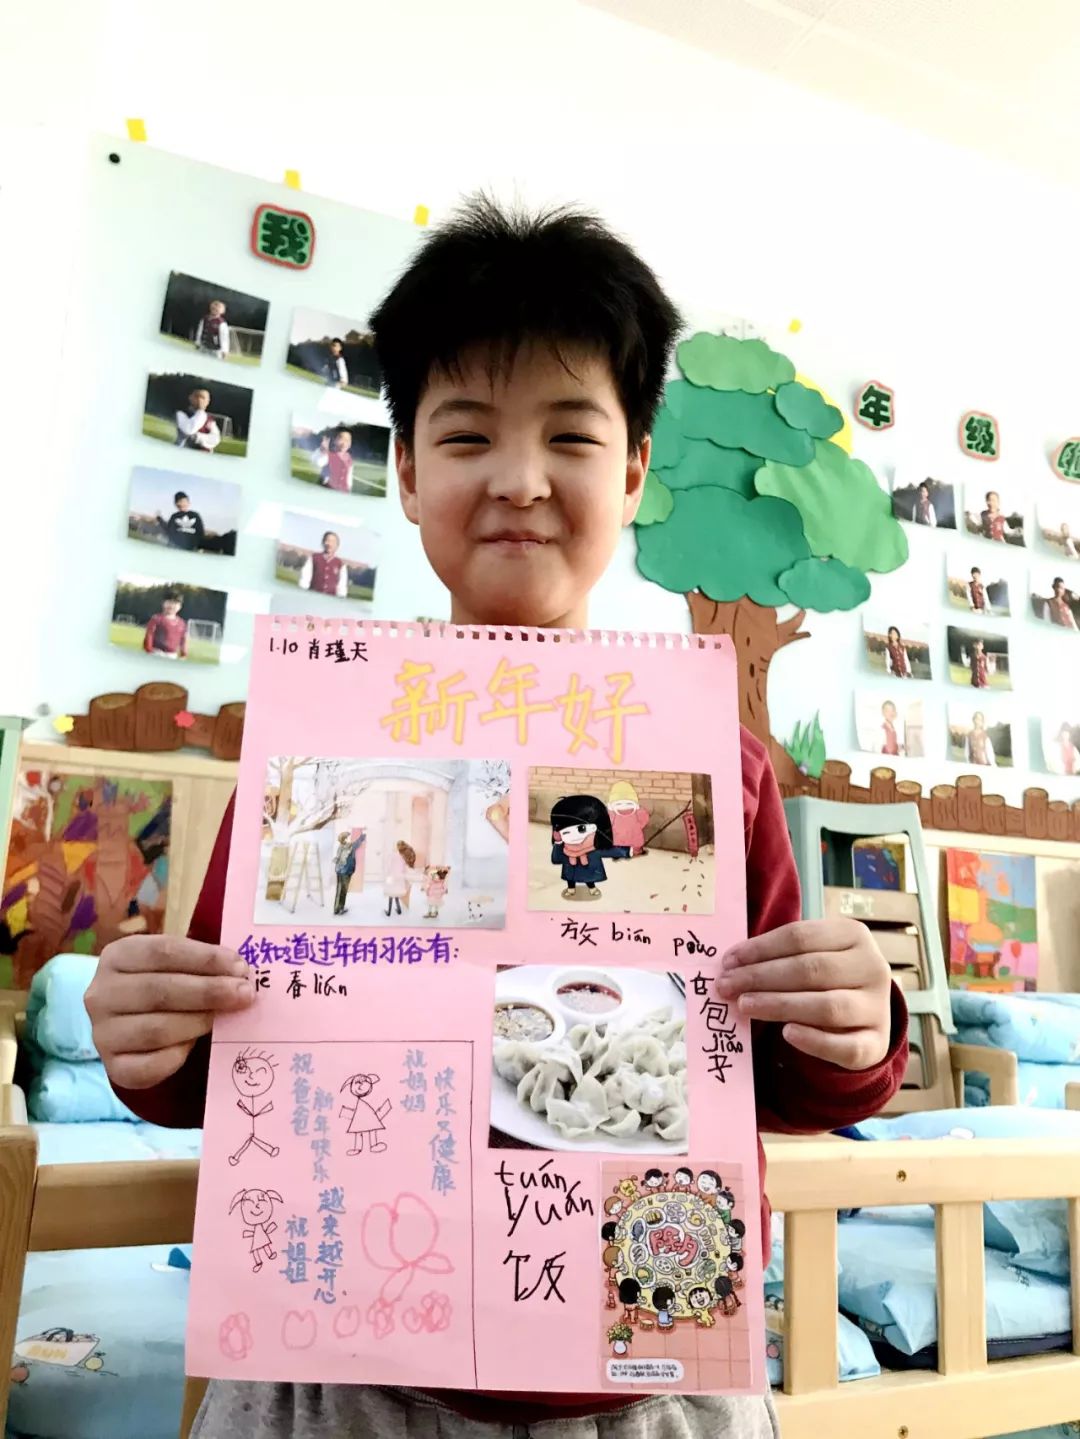 我
年
级
1.10 肖瑾天
新年好
放 bián pào
我知道过年的习俗有:
春lián
包
jiǎo
子
祝爸爸
新年快乐
祝妈妈
快乐又健康
祝姐姐
越来越开心
tuán
yuán
饭